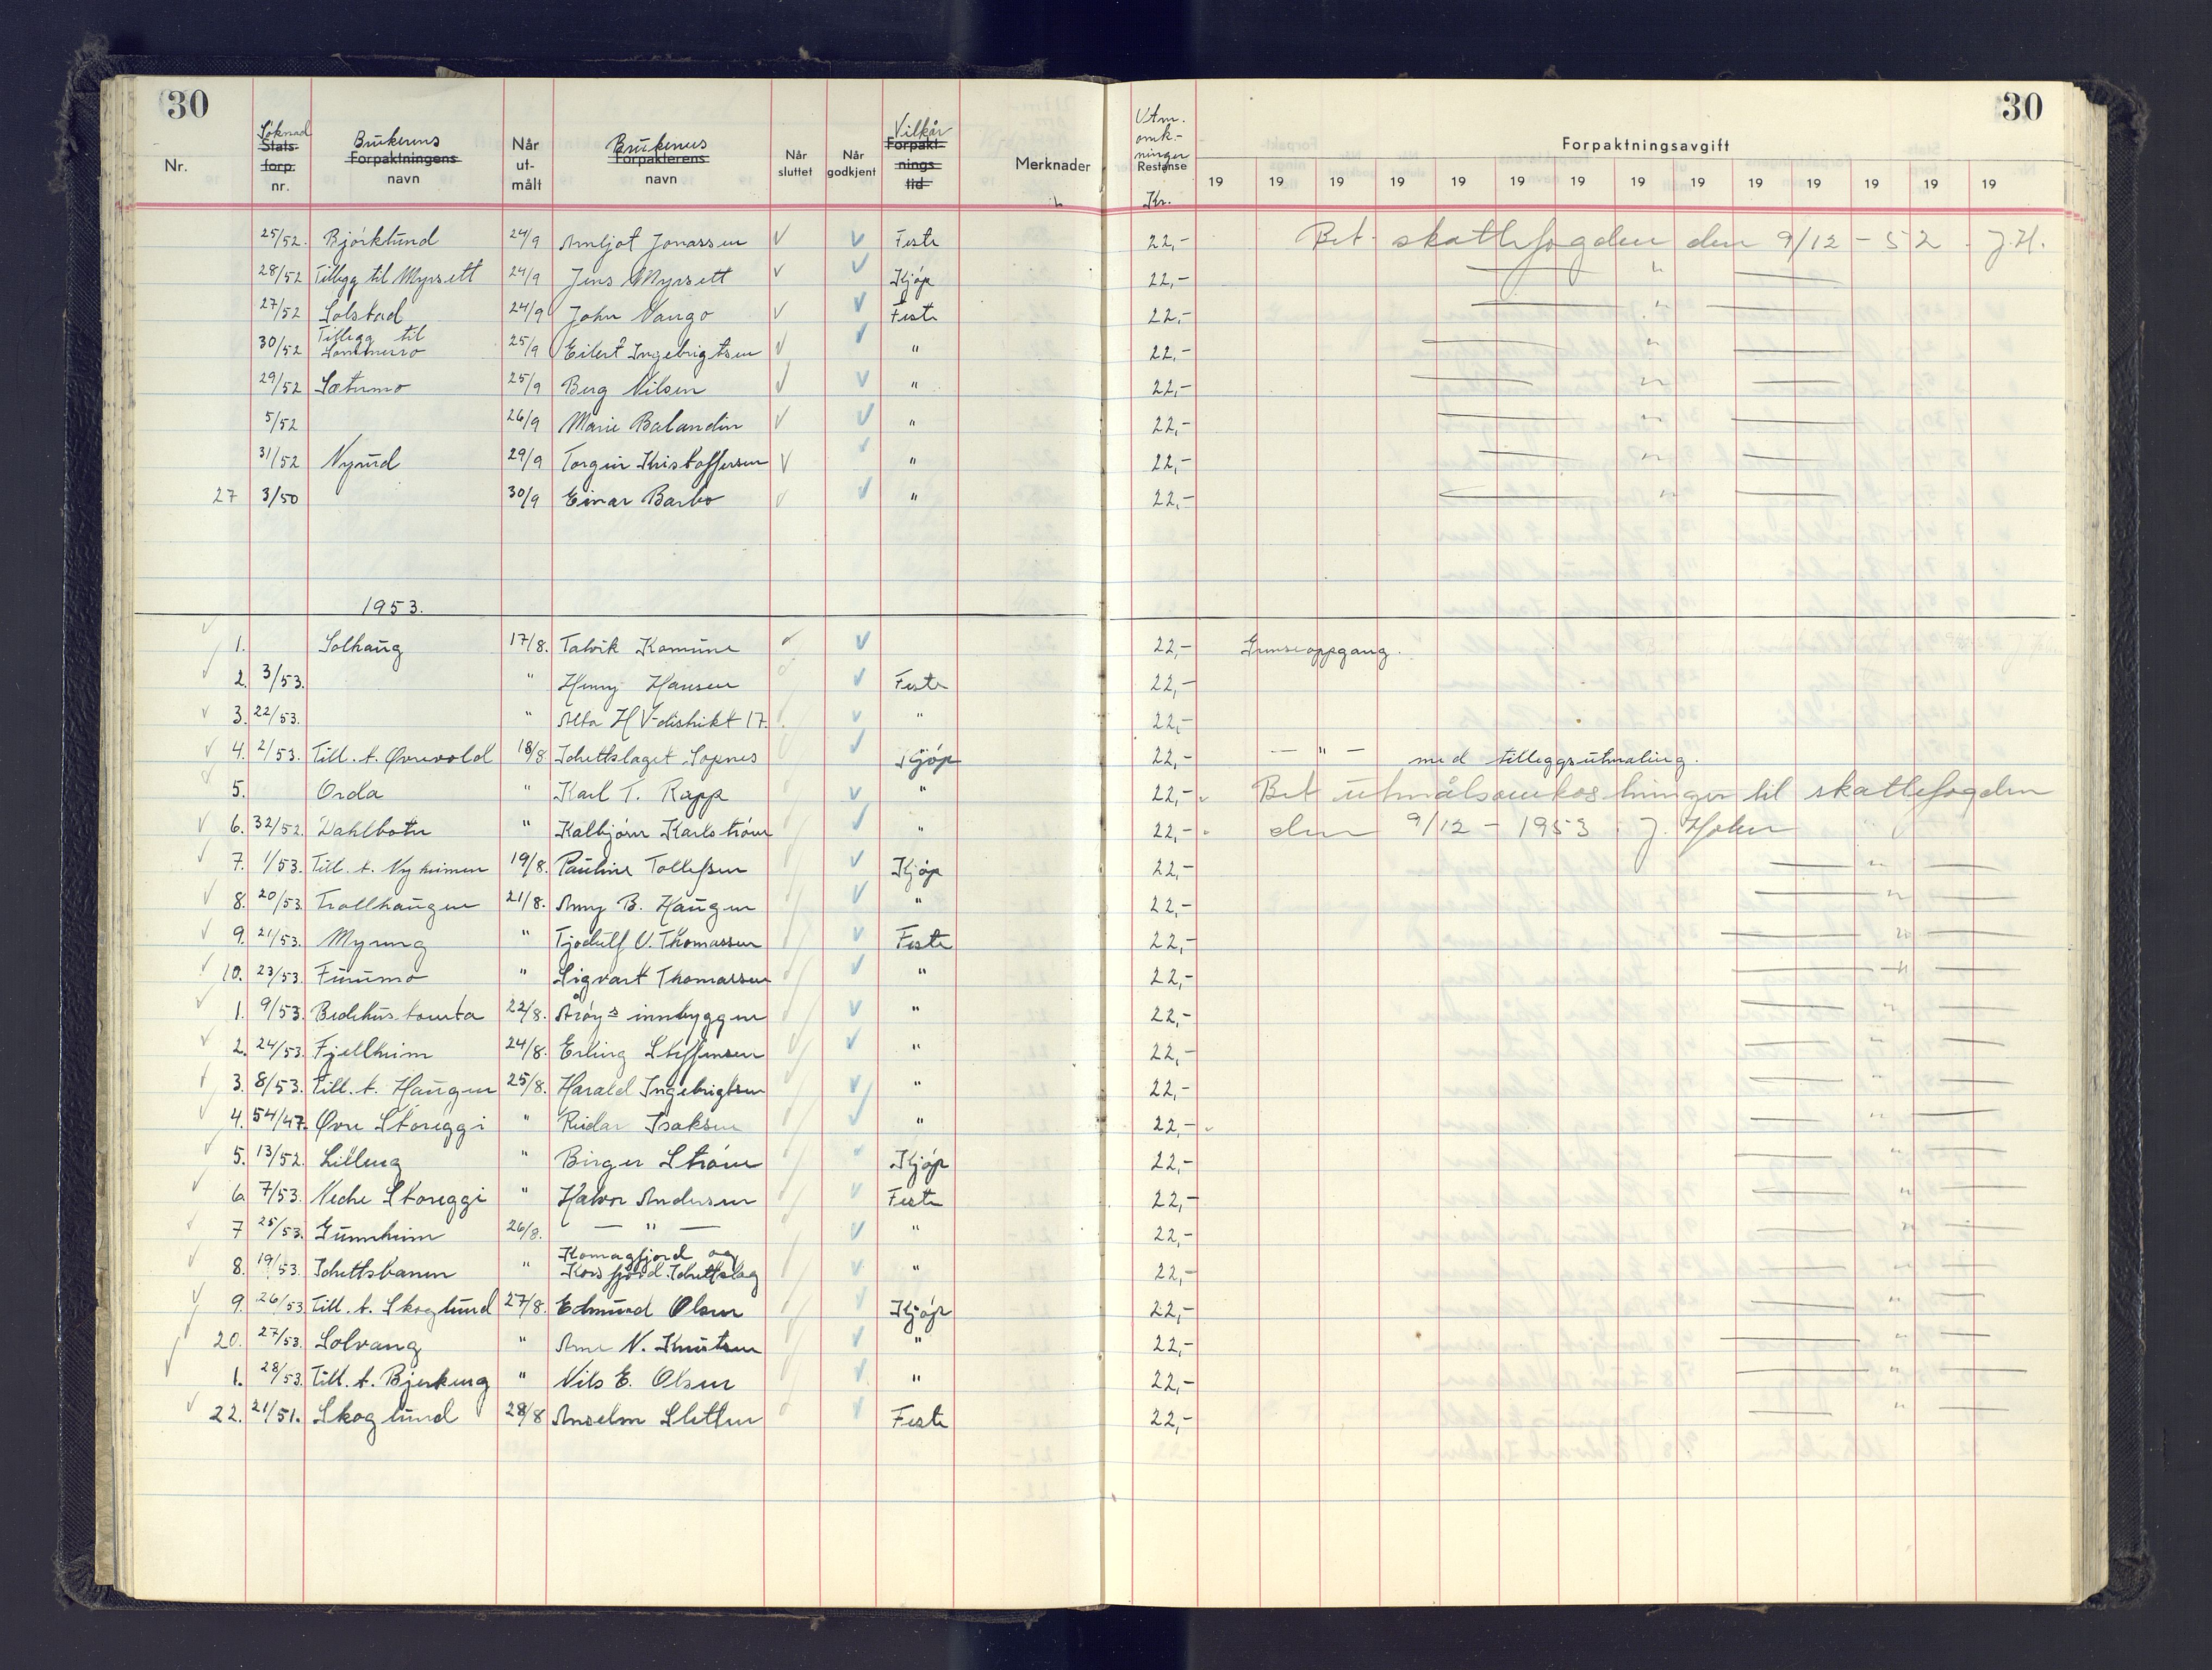 30 30
Nr. Søknad Stats- forp. nr. Brukerens Forpaktningens navn Når ut- målt Brukenes Forpakterens navn Når sluttet Når godkjent Vilkår Forpakt- nings tid Merknader Utm. omk- ninger Restanse Kr. Forpaktningsavgift
19 19 19 19 19 19 19 19 19 19 19 19 19 19
25/52. Bjørklund 24/9 Arnljot Jonassen V V Feste 22,- Bet. skattefogden den 9/12 - 52. J.H.
28/52 Tillegg til Myrsett 24/9 Jens Myrsett V V Kjøp 22,- — " —
27/52 Solstad 24/9 John Nango V V Feste 22,- — " —
30/52 Tillegg til Sommerro 25/9 Eilert Ingebrigtsen V V " 22,- — " —
29/52 Sætermo 25/9 Berg Nilsen V V " 22,- — " —
5/52 26/9 Marie Balandin V V " 22,- — " —
31/52 Nyrud 29/9 Torgeir Kristoffersen V V " 22,- — " —
27 3/50 30/9 Einar Barbo V V " 22,- — " —
1953.
V 1. Solhaug 17/8. Talvik Komune V V 22,- Grenseoppgang.
V 2. 3/53. " Henry Hansen V Feste 22,-
V 3. 22/53. " Alta HV-distrikt 17. V " 22,-
V 4. 2/53. Till. t. Øvrevold 18/8 Idrettslaget Sopnes V Kjøp 22,- — " — med tilleggsutmaling.
V 5. Orda " Karl T. Rapp V " 22,- Bet utmålsomkostninger til skattefogden
V 6. 32/52. Dahlbotn " Kalbjørn Karlstrøm V " 22,- den 9/12 - 1953. J. Holm
V 7. 1/53. Till. t. Nyheimen 19/8. Pauline Tollefsen V Kjøp 22,- — " —
V 8. 20/53. Trollhaugen 21/8. Anny B. Haugen V " 22,- — " —
V 9. 21/53. Myreng " Tjodulf U. Thomassen V Feste 22,- — " —
V 10. 23/53. Furumo " Sigvart Thomassen V " 22,- — " —
V 1. 9/53. Bedehustomta 22/8. Årøys innbyggere V " 22,- — " —
V 2. 24/53. Fjellheim 24/8. Erling Steffensen V " 22,- — " —
V 3. 8/53. Till. t. Haugen 25/8. Harald Ingebrigtsen V " 22,- — " —
V 4. 54/47. Øvre Storeggi " Reidar Isaksen V " 22,- — " —
V 5. 13/52. Lilleng " Birger Strøm V Kjøp 22,- — " —
V 6. 7/53. Nedre Storeggi " Halvor Andersen V Feste 22,- — " —
V 7 25/53. Gunnheim 26/8. — " — V " 22,- — " —
V 8. 19/53. Idrettsbanen " Komagfjord og Korsfjord Idrettslag V " 22,- — " —
V 9. 26/53 Till. t. Skoglund 27/8. Edmund Olsen V Kjøp 22,- — " —
V 20. 27/53. Solvang " Arne N. Knutsen V " 22,- — " —
V 1. 28/53. Till. t. Bjerkeng " Nils E. Olsen V " 22,- — " —
V 22. 21/51. Skoglund 28/8 Anselm Sletten V Feste 22,- — " —